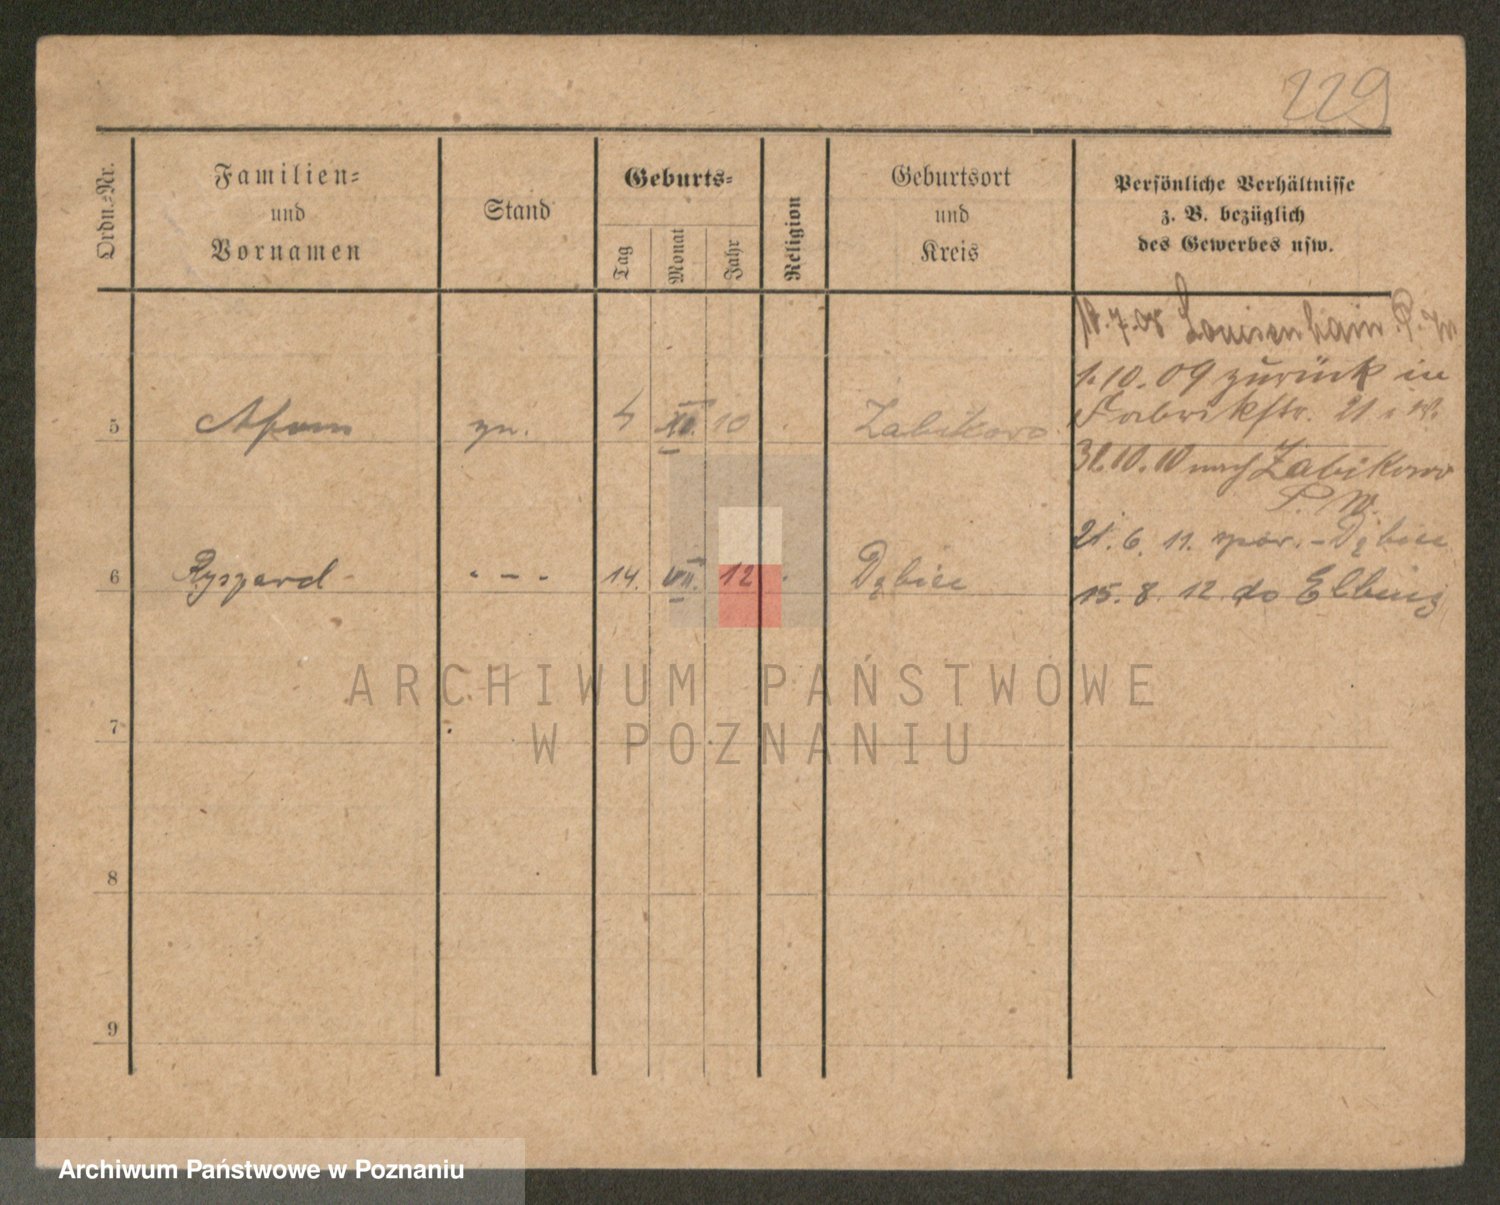 229
Ordn.-Nr.
Familien-
und
Vornamen
Stand
Geburts-
Tag
Monat
Jahr
Religion
Geburtsort
und
Kreis
Persönliche Verhältnisse
z. B. bezüglich
des Gewerbes usw.
7.08 Louisenhain P.
1.10.09 zurück in
Fabrikstr. 21
31.10.10 nach Zabikowo
P. W.
5 yn. 4 XI. 10 Zabikowo
21. 6. 11. Dębiec
6 Ryszard - - - 14. VII. 12 Dębiec
15. 8. 12 do Elbing
7
8
9
ARCHIWUM PAŃSTWOWE
W POZNANIU
Archiwum Państwowe w Poznaniu